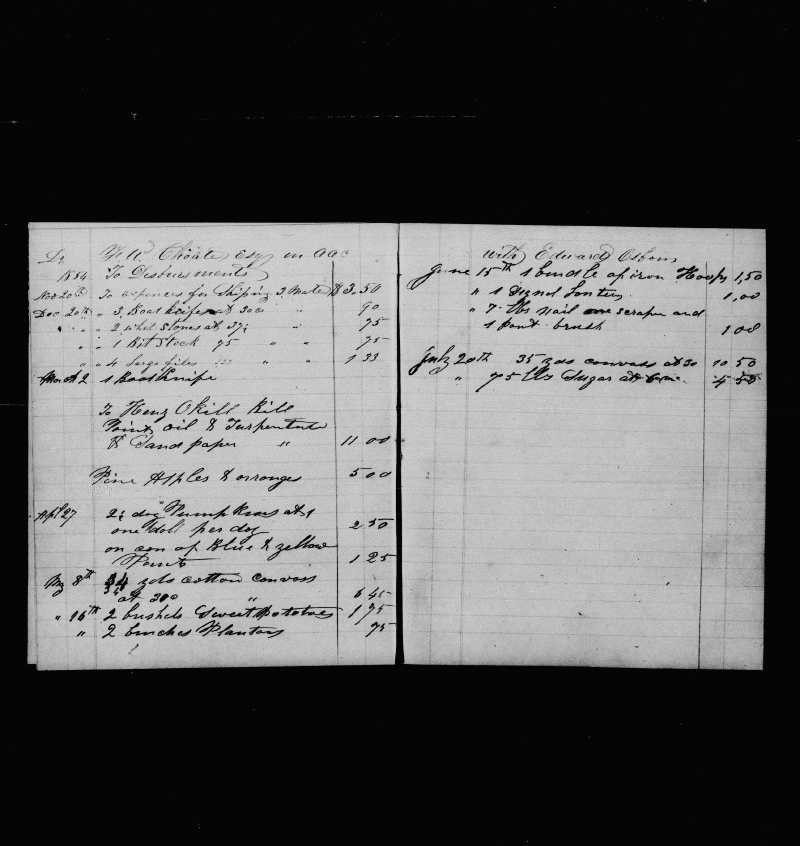 Dr Choate Esqr in acc
1854 To Disbursments
Nov 20th To expences for Shiping 3 Mates $ 3.50
Dec 20th " 3, Boat knifes at 30c " 90
" " 2 whet Stones at 37½ " 75
" " 1 Bit Stock 75 " " 75
" " 4 large files 33 " " 1 33
March 2 1 Boat knife
To Henz Okill Bill
Paint, oil & Turpentine
& Sand paper " 11 00
Pine Apples & orranges 5 00
Apl 27 2½ doz Pumpkins at 1
one doll per doz 2 50
on can of Blue & zellow
Paint 1 25
My 8th 34 zds cotton canvass
at "  6 45
" 16th 2 bushels Sweet Potatoes 1 75
" 2 bunches Plantons 75
with Edward Osborn
June 15th 1 bundle of iron Hoops 1,50
" 1 Signal Lantern 1,00
" 7 lbs nail one scraper and
1 Paint brush 1 00
July 20th 35 zds canvass at 30 10 50
" 75 lbs Sugar at 6 4 50